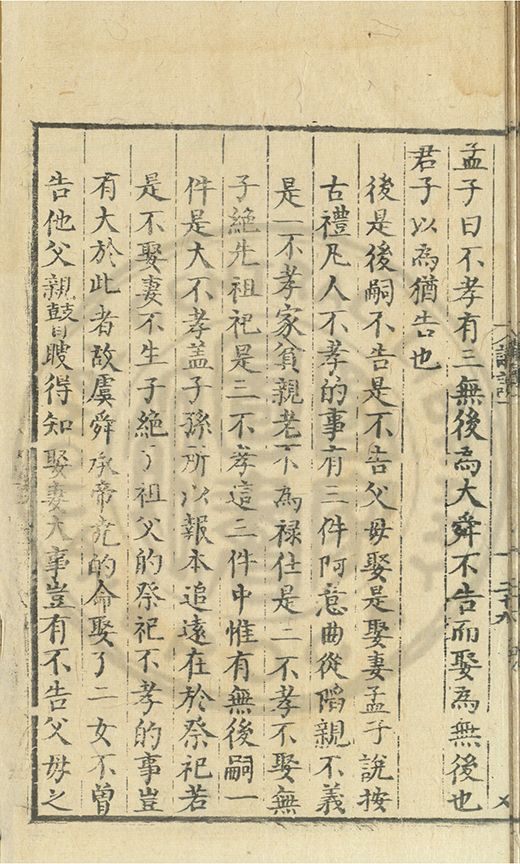 孟子曰不孝有三無後為大舜不告而娶為無後也
君子以為猶告也
後是後嗣不告是不告父母娶是娶妻孟子說按
古禮凡人不孝的事有三件阿意曲從陷親不義
是一不孝家貧親老不為祿仕是二不孝不娶無
子絶先祖祀是三不孝這三件中惟有無後嗣一
件是大不孝盖子孫所以報本追遠在於祭祀若
是不娶妻不生子絶了祖父的祭祀不孝的事豈
有大於此者故虞舜承帝堯的命娶了二女不曾
告他父親瞽瞍得知娶妻大事豈有不告父母之